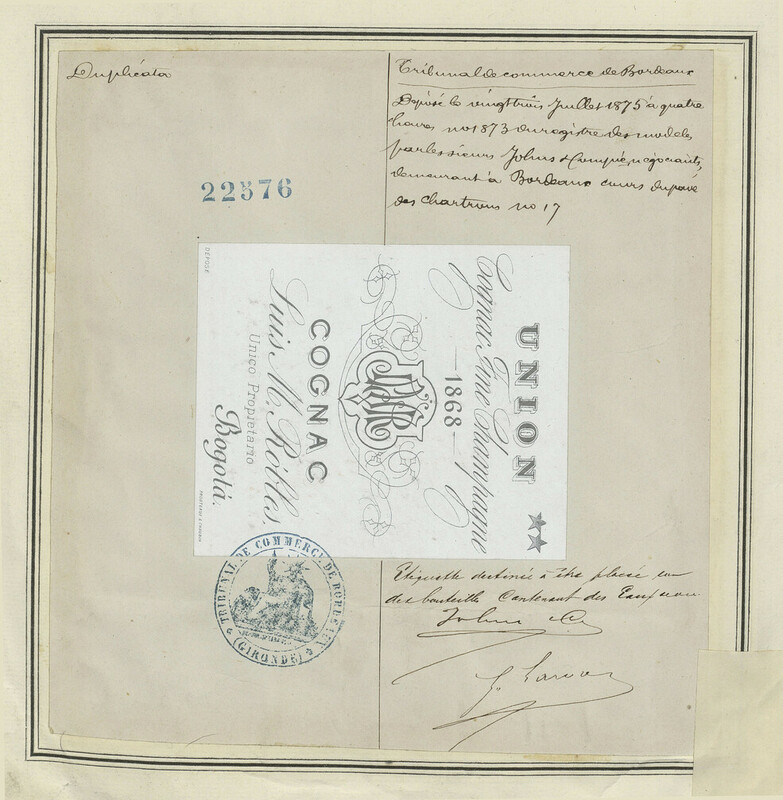 Duplicata
22576
Tribunal de commerce de Bordeaux
Déposé le vingt trois Juillet 1875 à quatre
heures no 1873 du registre des modèles
par les sieurs Johns & Compie, négociants,
demeurant à Bordeaux cours du pavé
des Chartrons no 17
UNION
Cognac Fine Champagne
1868
COGNAC
Luis M. Robles.
Unico Propietario
Bogotá.
DÉPOSÉ
TRIBUNAL DE COMMERCE DE BORDEAUX
(GIRONDE)
Etiquette destinée à être placée sur
des bouteilles Contenant des
Johns & Cie